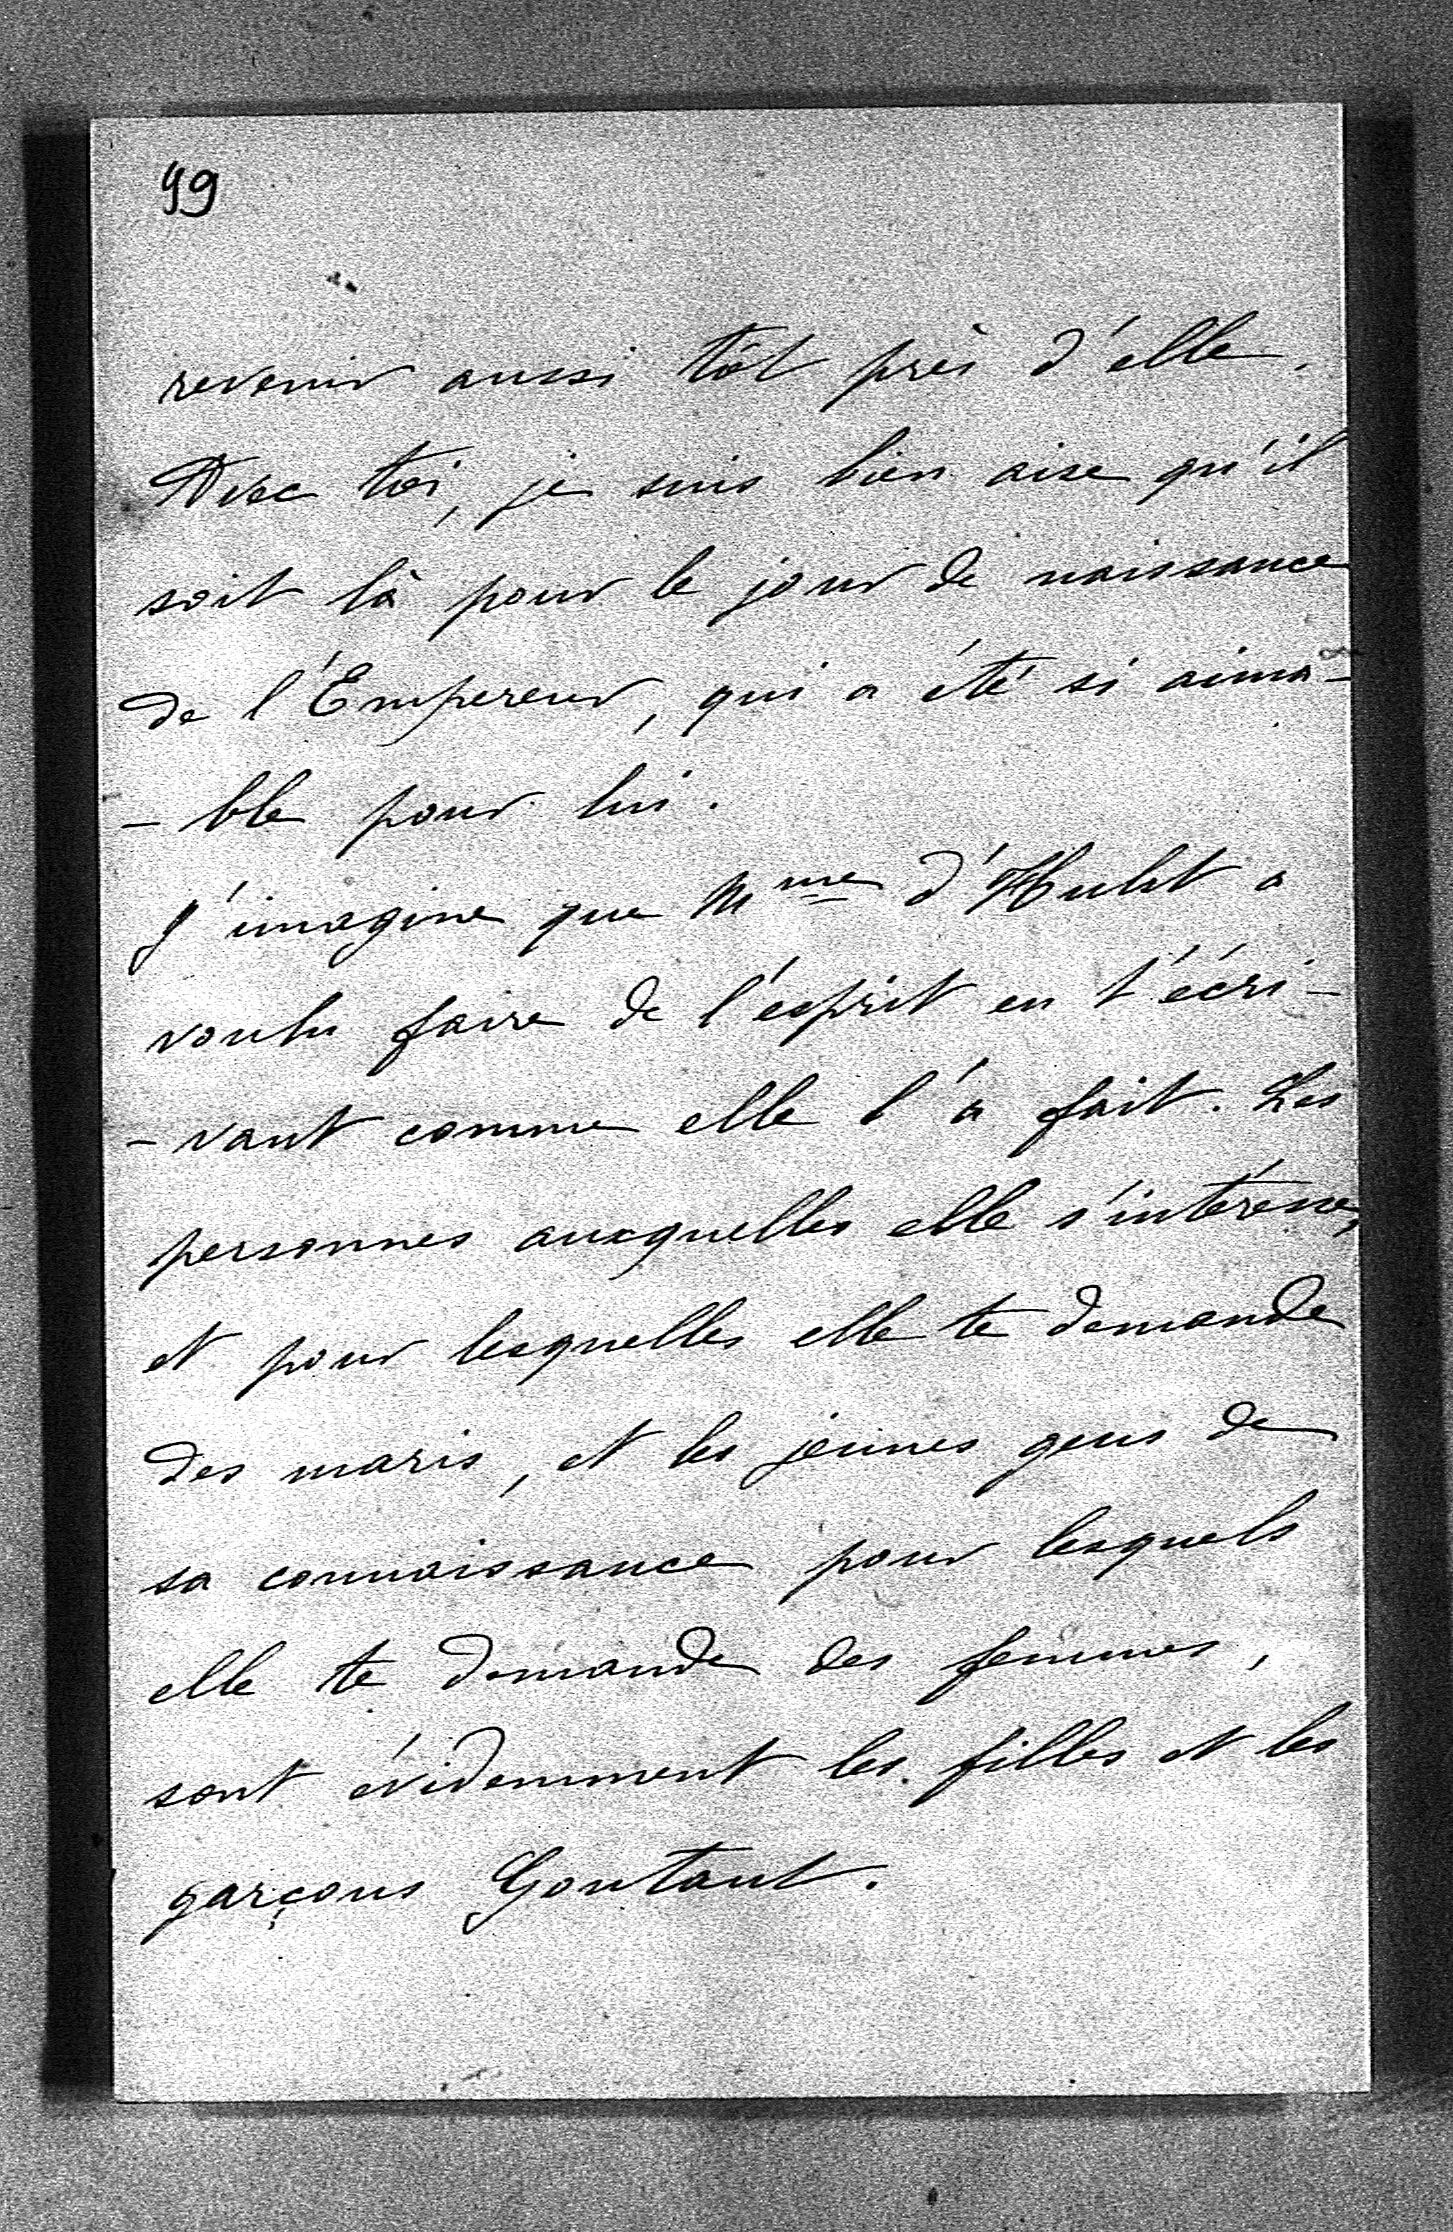 99
revenir aussi tôt près d'elle.
Avec toi, je suis bien aise qu'il
soit là pour le jour de naissance
de l'Empereur, qui a été si aima-
- ble pour lui.
J'imagine que Mme d'Hulst a
voulu faire de l'ésprit en t'écri-
- vant comme elle l'a fait. Les
personnes auxquelles elle s'intéresse,
et pour lesquelles elle te demande
des maris, et les jeunes gens de
sa connaissance pour lesquels
elle te demande des femmes,
sont évidemment les filles et les
garçons Gontaut.